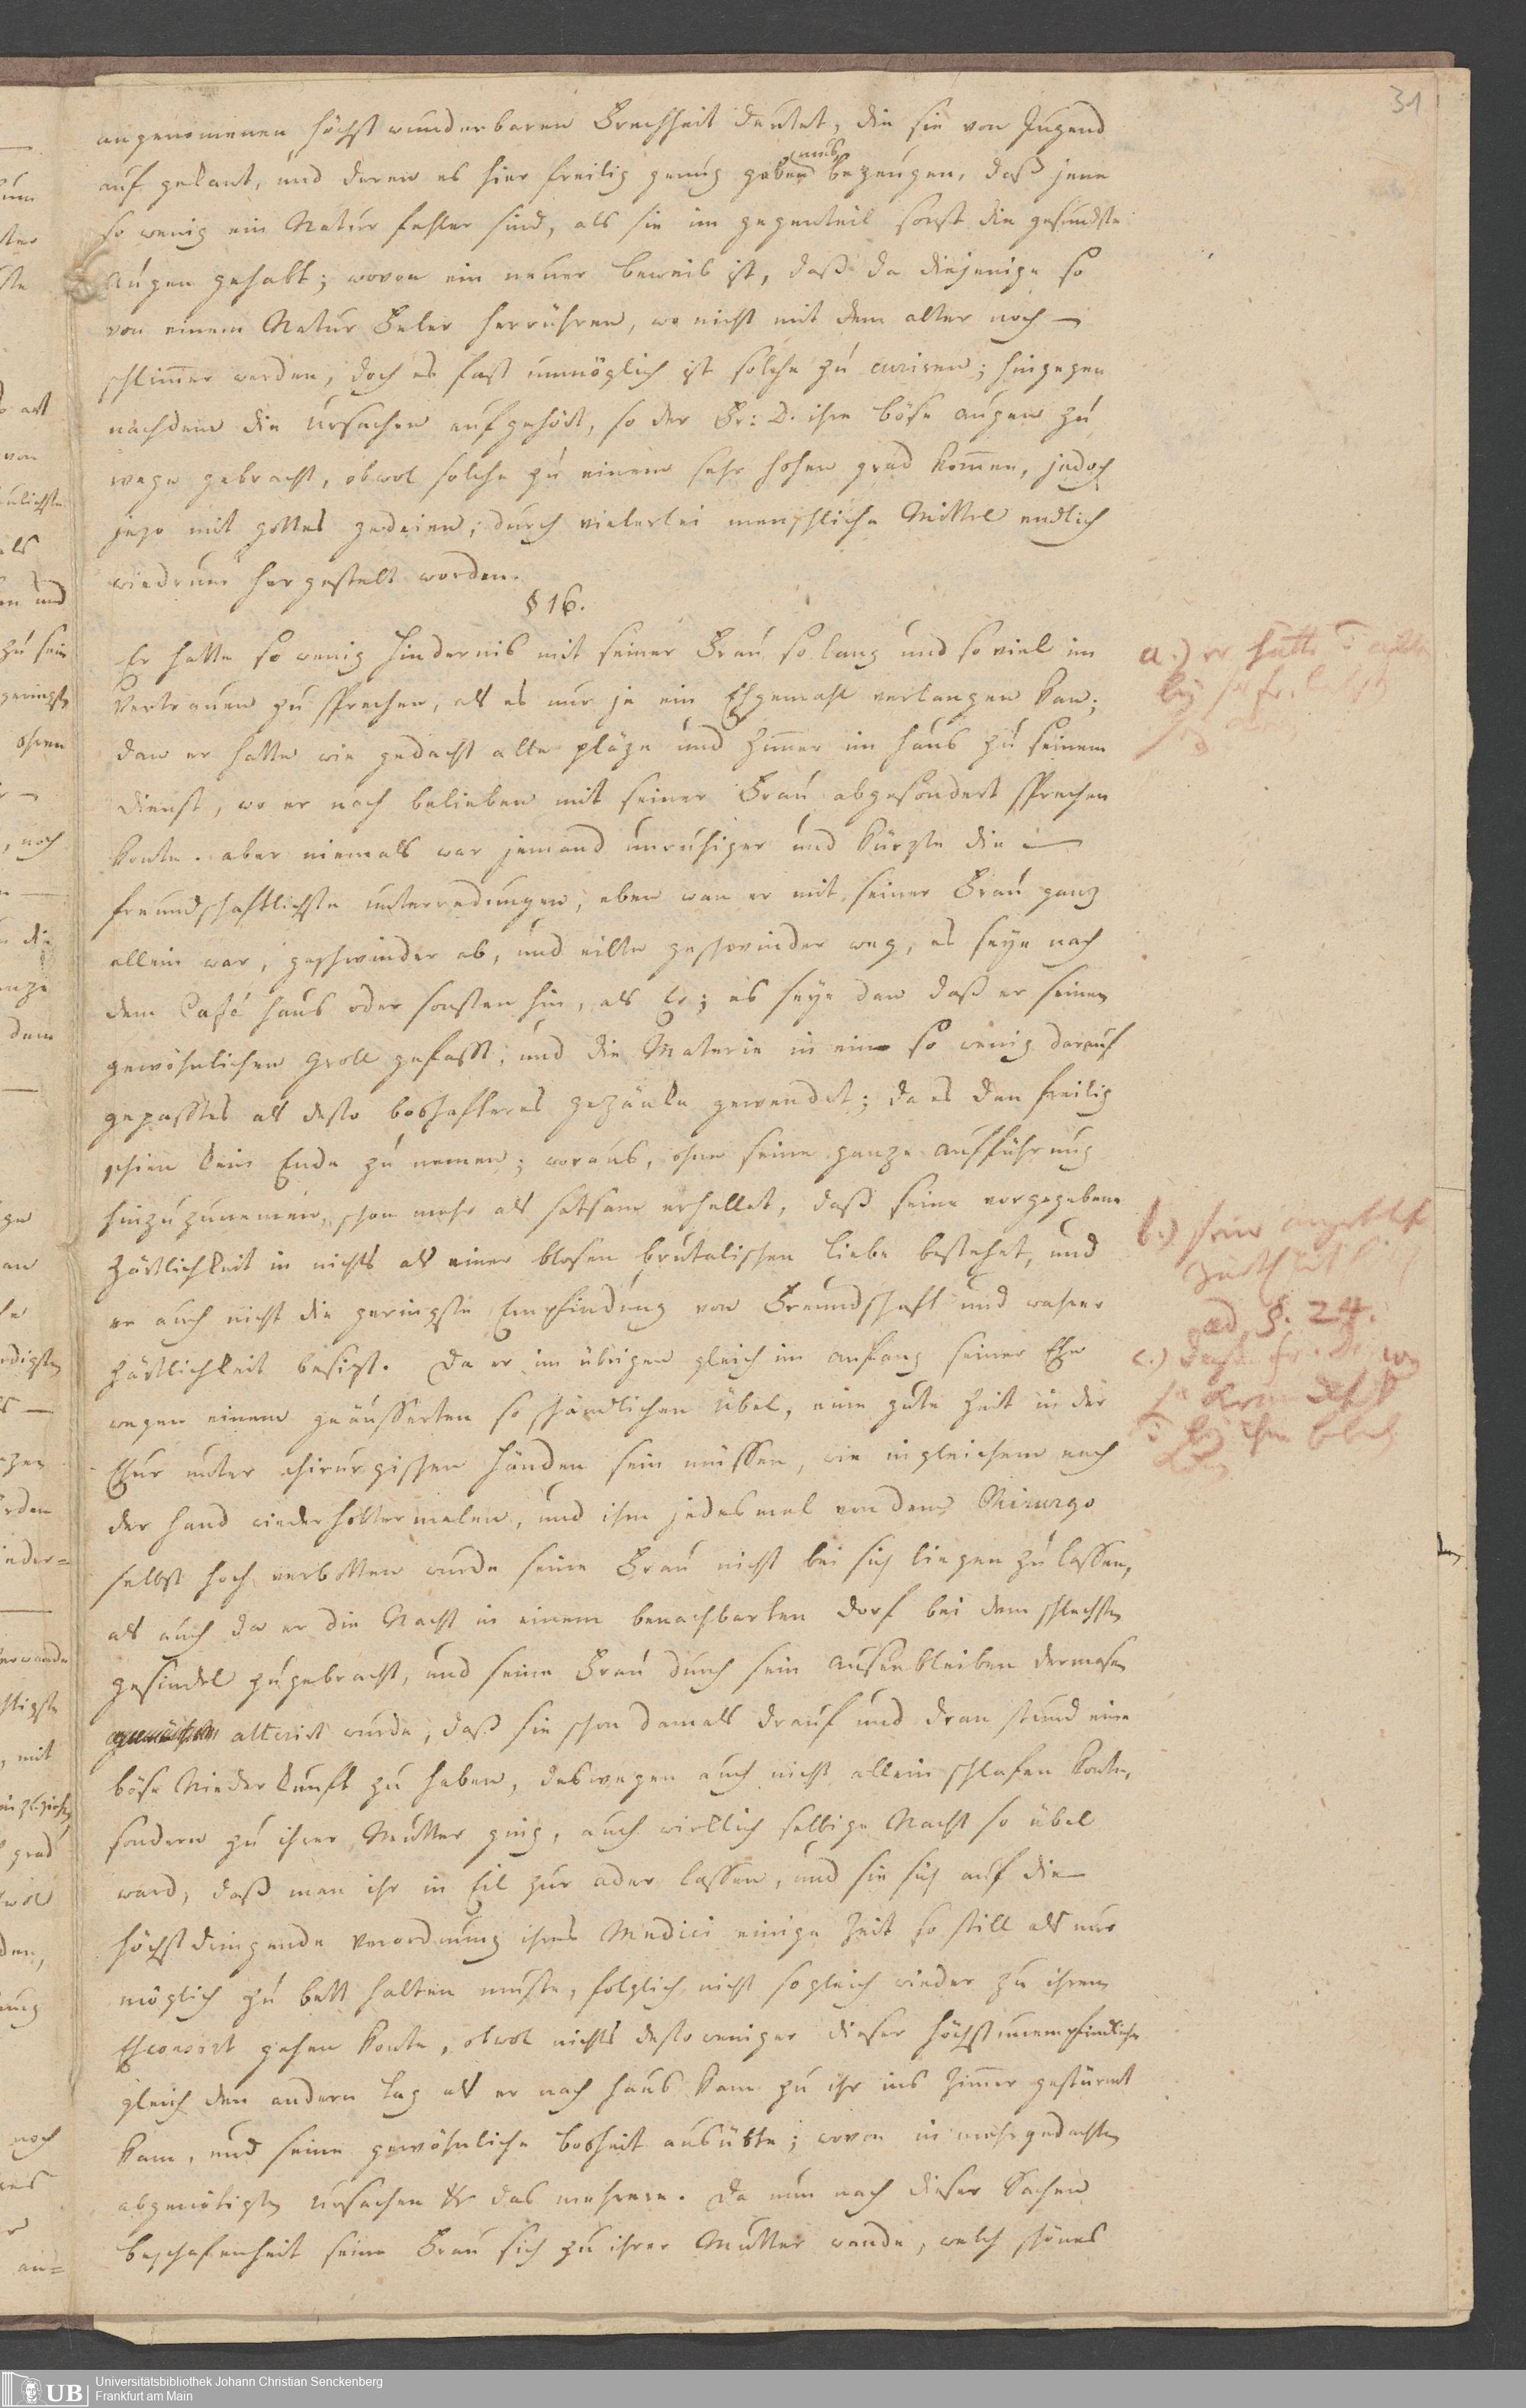 31
angenomenen höchst wunderbaren Frechheit deutet, die sie von Jugend
auf gekant, und deren es hier freilig genug geben mus, bezeugen, daß jene
so wenig ein Natur fehler sind, als sie im gegenteil sonst die gesundste
Augen gehabt; wovon ein neuer beweis ist, daß da diejenige so
von einem Natur Feler herrühren, wo nicht mit dem alter noch —
schlimer werden, doch es fast unmöglich ist solche zu curiren; hingegen
nachdem die Ursachen aufgehört, so der Fr: D. ihre böse augen zu
wege gebracht, obwol solche zu einem sehr hohen grad komen, jedoch
jezo mit gottes gedeien, durch vielerlei menschliche Mittel endlich
wiedrum hergestelt worden.
§ 16.
Er hatte so wenig Hindernis mit seiner Frau so lang und so viel im
Vertrauen zu sprechen, als es nur je ein Ehgemahl verlangen kan;
dan er hatte wie gedacht alle pläze und Zimer im haus zu seinem
dienst, wo er nach belieben mit seiner Frau abgesondert sprechen
konte. aber niemals war jemand unruhiger und kürzte die —
freundschaftlichste unterredungen, eben wan er mit seiner Frau ganz
allein war, geschwinder ab, und eilte geschwinder weg, es seye nach
dem Café haus oder sonsten hin, als Er; es seye dan daß er seinen
gewöhnlichen Groll gefasst, und die Materie in ein so wenig darauf
gepasstes als desto boshafteres gezänke gewendet; da es dan freilig
schien kein Ende zu nemen; woraus, ohne seine ganze aufführung
hinzuzunemen, schon mehr als satsam erhellet, daß seine vorgegebene
Zärtlichkeit in nichts als einer blosen brutalischen liebe bestehet, und
er auch nicht die geringste Empfindung von Freundschaft und wahrer
Zärtlichkeit besizt. Da er im übrigen gleich im anfang seiner Ehe
wegen einem geäusserten so schändlichen übel, eine gute Zeit in der
Chur unter chirurgischen Händen sein müssen, wie ingleichem nach
der hand wiederholtermalen, und ihm jedesmal von dem Chirurgo
selbst hoch verbotten wurde seine Frau nicht bei sich liegen zu lassen,
als auch da er die Nacht in einem benachbarten dorf bei dem schlechsten
gesindel zugebracht, und seine Frau durch sein ausenbleiben dermasen
alterirt wurde, daß sie schon damals drauf und dran stund eine
böse Niederkunft zu haben, deswegen auch nicht allein schlafen konte,
sondern zu ihrer Mutter ging, auch wirklich selbige Nacht so übel
ward, daß man ihr in Eil zur ader lassen, und sie sich auf die —
höchst dringende Verordnung ihres Medici einige Zeit so still als nur
möglich zu bett halten muste, folglich nicht sogleich wieder zu ihrem
Ehconsort gehen konte, obwol nichts destoweniger dieser höchstunempfindliche
gleich den andern tag als er nach haus kam zu ihr ins Zimer gestürmt
kam, und seine gewöhnliche bosheit ausübte; wovon in mehrgedachten
abgenötigten Ursachen das mehrere. Da nun nach dieser Sachen
beschafenheit seine Frau sich zu ihrer Mutter wande, welch schönes
a.) er hatte
b.) seine
ad §. 24.
c.)
Universitätsbibliothek Johann Christian Senckenberg
Frankfurt am Main
UB